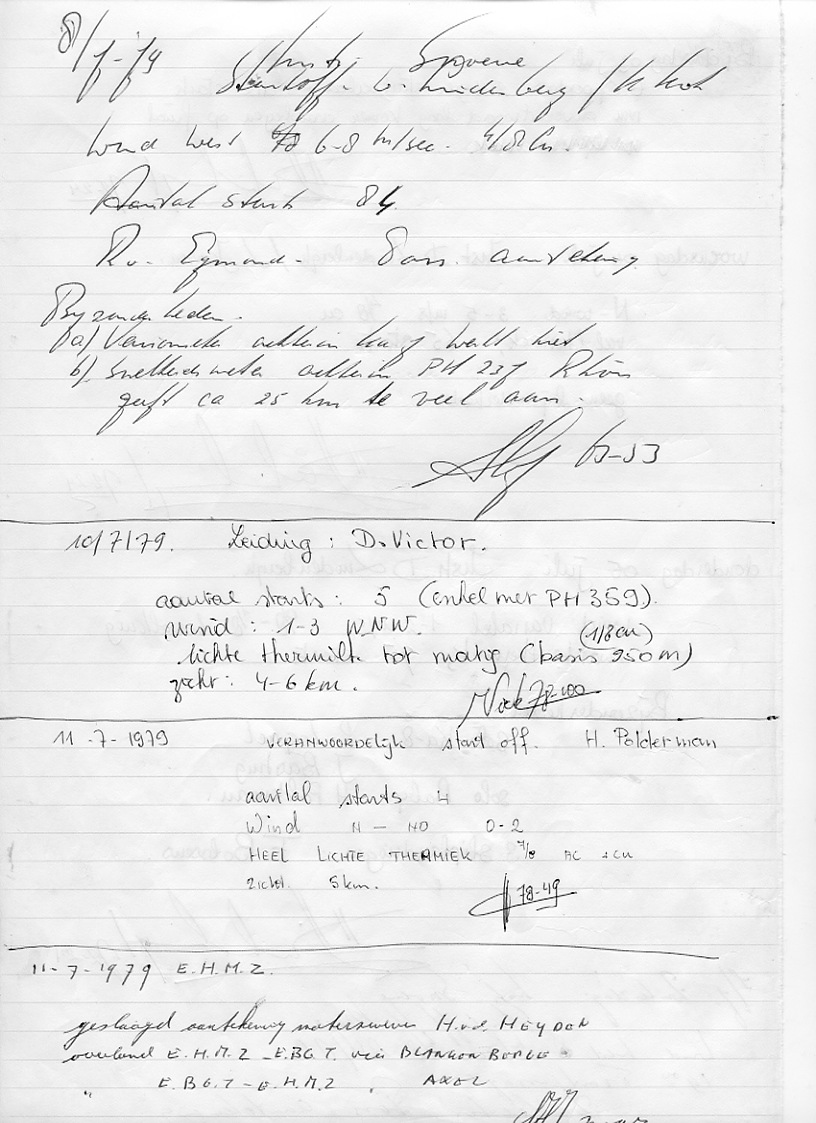 8/7-79
Startoff. / K Kok
Wind West 6-8 m/sec. 4/8 Cu.
Aantal starts 84.
R.v. Egmond - aantekening
Byzonderheden.
a) Variometer achterin Ka7 werkt niet
b) Snelheidsmeter achterin PH 237 Rhön
geeft ca 25 km te veel aan.
63-53
10/7/79. Leiding : D. Victor.
aantal starts : 5 (enkel met PH 359).
wind : 1-3 W.N.W. (1/8 cu)
lichte thermiek tot matig (basis 950m)
zicht : 4-6 km.
78-100
11-7-1979 VERANWOORDELIJK start off. H. Polderman
aantal starts 4
Wind N - NO 0-2
HEEL LICHTE THERMIEK 7/8 AC + CU
zicht. 5km.
78-49
11-7-1979 E.H.M.Z.
geslaagd aantekening H.v.d. HEYDEN
overland E.H.M.Z - E.B.G.T. via
" E.B.G.T - E.H.M.Z " AXEL